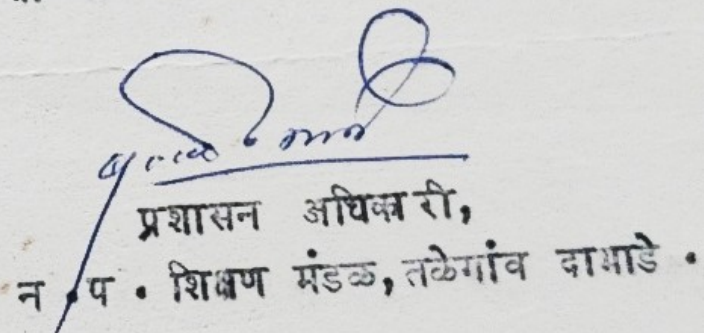 प्रशासन अधिकारी,
न . प . शिक्षण मंडळ, तळेगांव दाभाडे .